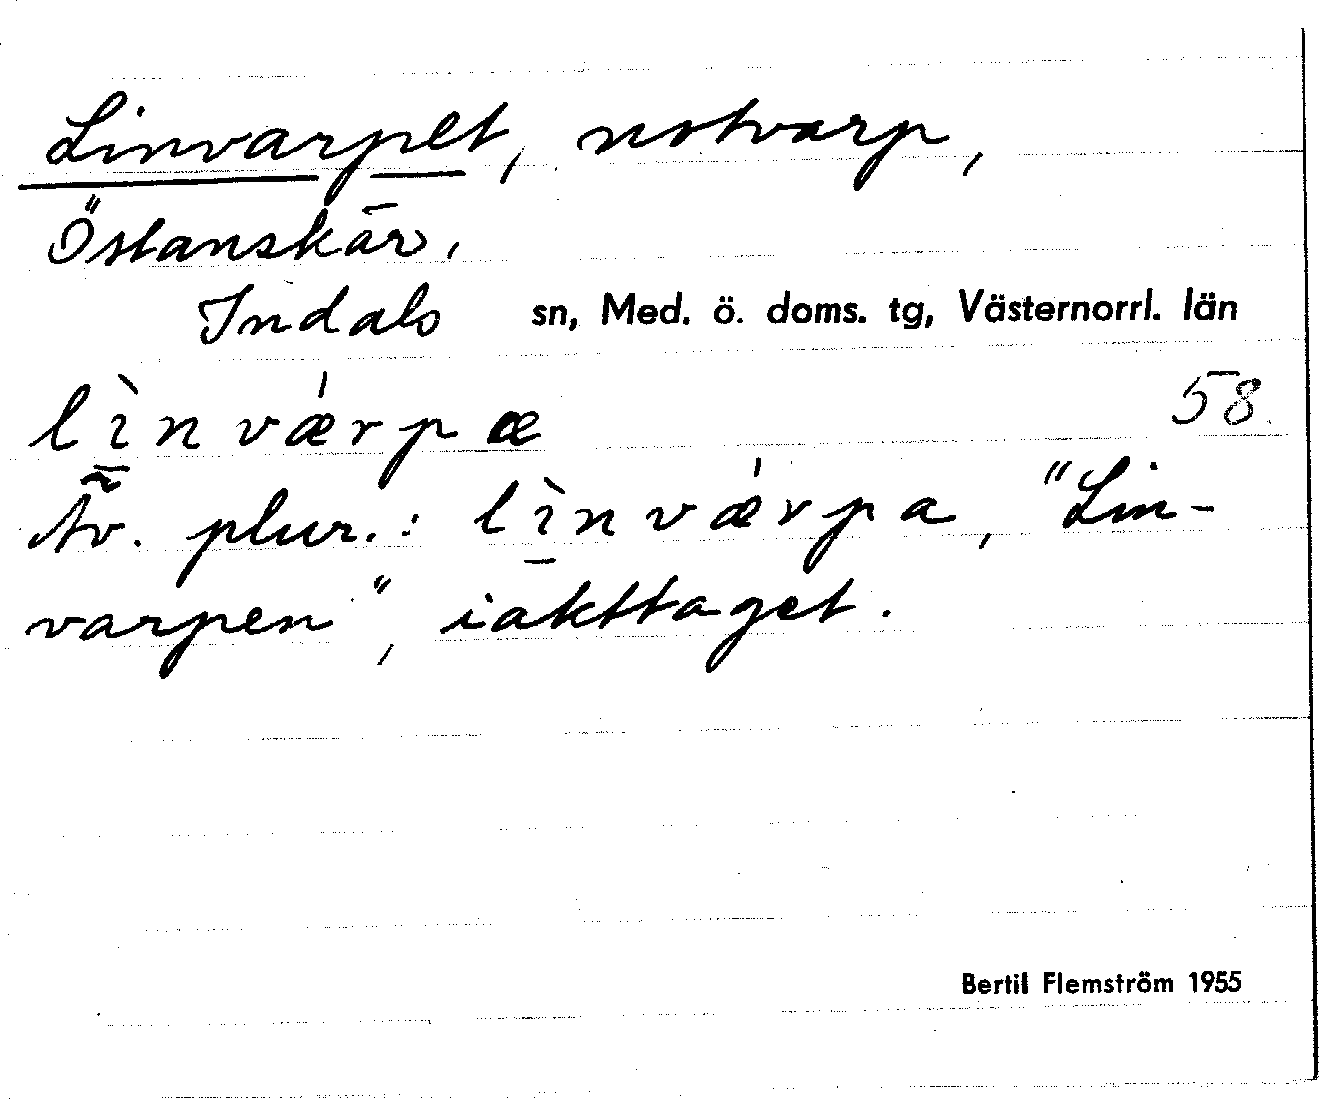 Linvarpet, notvarp,
Östanskär,
Indals sn, Med. ö. doms. tg, Västernorrl. län
lìnvǽrpæ 58.
Äv. plur.: lìnvǽrpa, "Lin-
varpen", iakttaget.
Bertil Flemström 1955